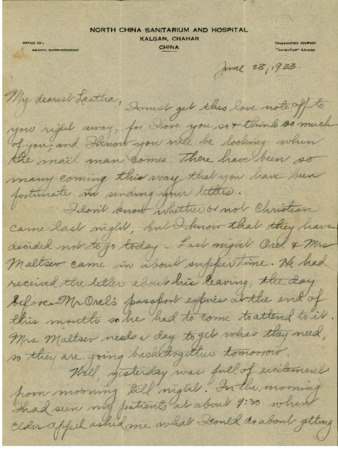 NORTH CHINA SANITARIUM AND HOSPITAL
KALGAN, CHAHAR
CHINA
June 23, 1933
My dearest
I must get this love note off to
you right away, for I love you so & think so much
of you, and I know you will be looking when
the mail man comes. There have been so
many coming this way that you have been
fortunate in sending your letters.
I don't know whether or not Christian
came last night, but I know that they have
decided not to go today. Last night Orel & Mrs
Maltsev came in about suppertime. We had
received the letter about his leaving, the day
before. Mr Orel's passport expires at the end of
this month so he had to come to attend to it.
Mrs. Maltsev needs a day to get what they need,
so they are going back together tomorrow.
Well yesterday was full of excitement
from morning till night. In the morning
I had seen my patients at about 9:30 when
Elder Appel asked me what I could do about getting